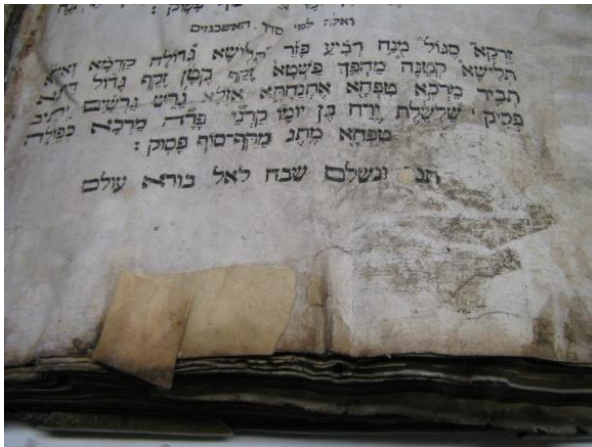 פסוק :
ואלה לפי סדר האשכנזים
זרקא סגול מנח רביע פזר תלישא גדולה קדמא
תלישא קטנה מהפך פשטא זקף קטן זקף גדול
תביר מרכא טפחא אתנחתא אזלא גרש גרשים יתיב
פסיק שלשלת ירח בן יומו קרני פרה מרכא כפולה
טפחא מתג מקף־סוף פסוק :
תם ונשלם שבח לאל בורא עולם